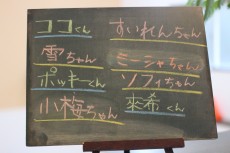 ココくん
雪ちゃん
ポッキーくん
小梅ちゃん
すいれんちゃん
ミーシャちゃん
ソフィちゃん
來希くん